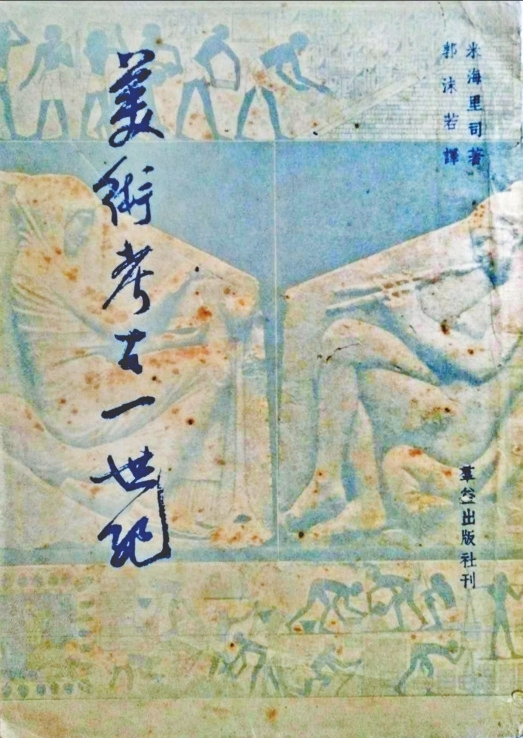 米海里司著
郭沫若譯
羣益出版社刊
美術考古一世紀